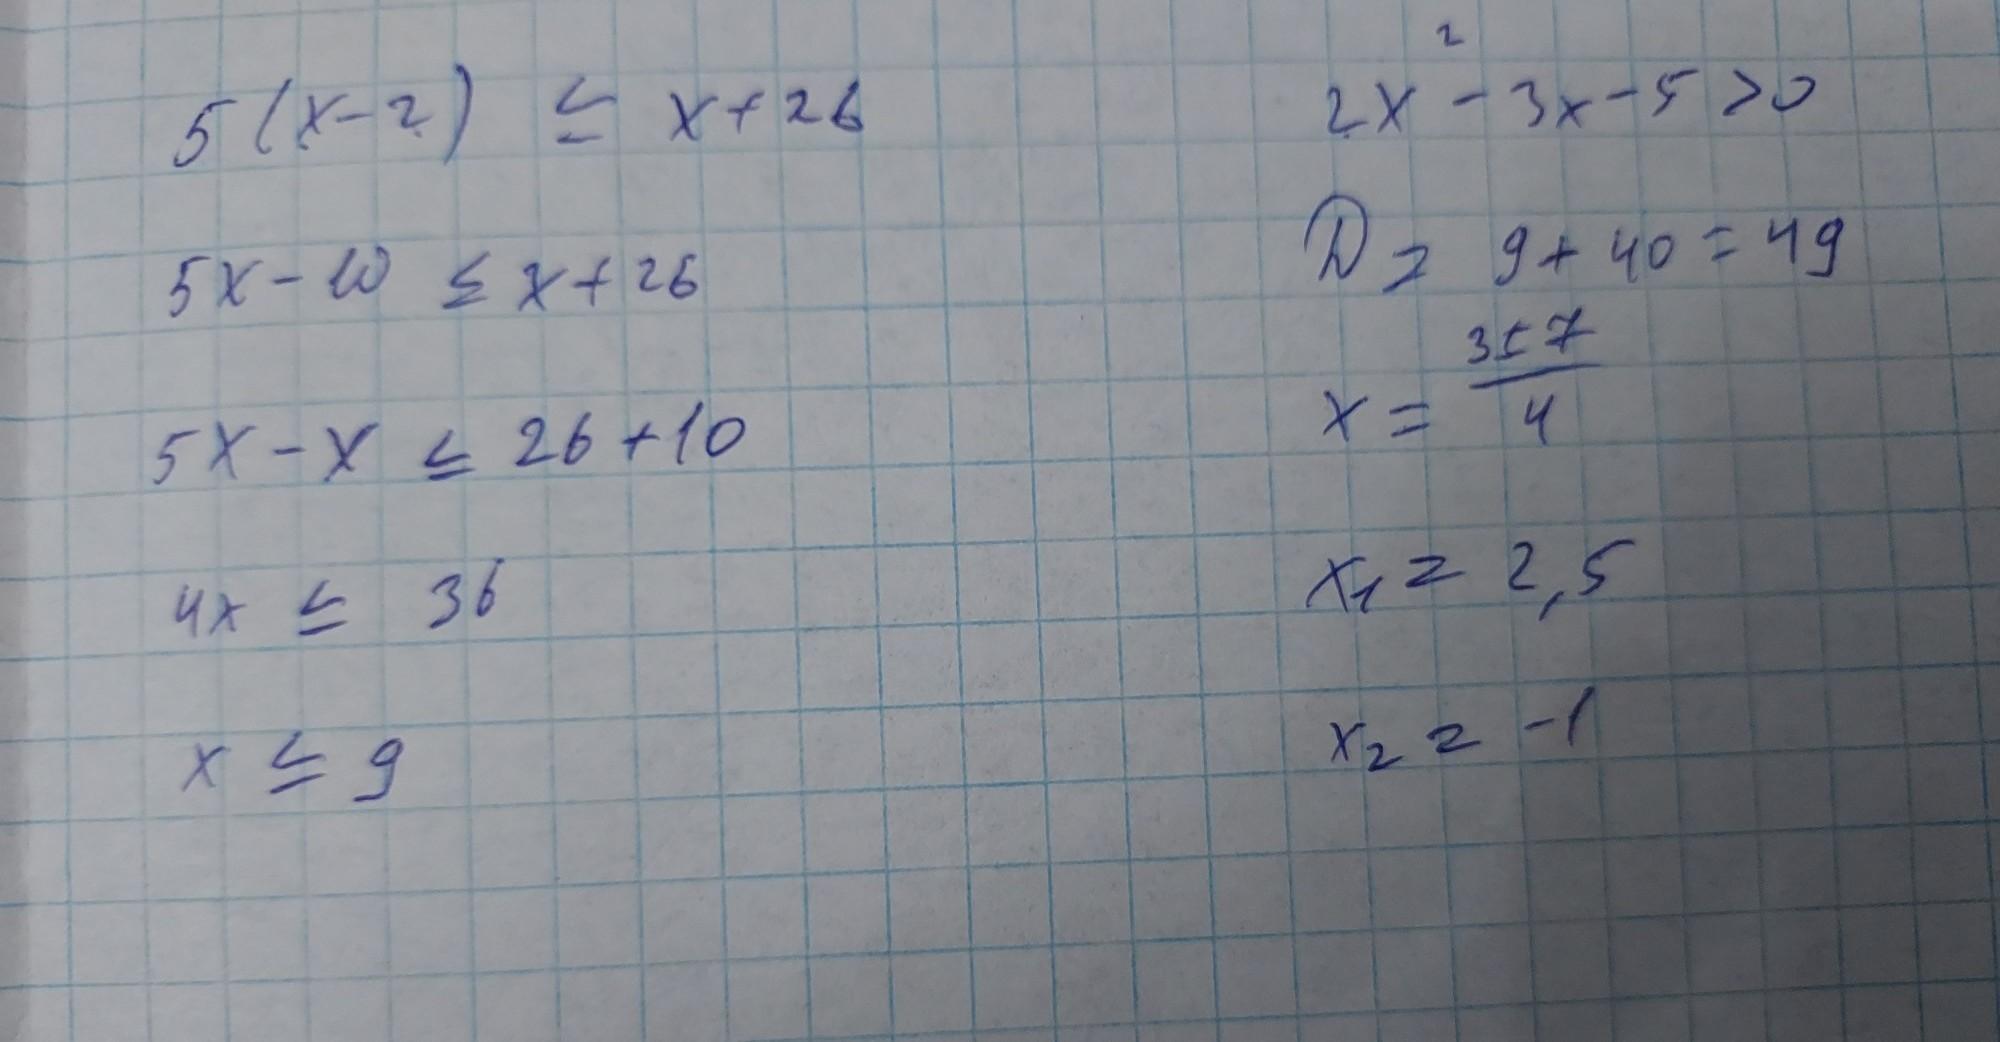 5(x-2) ≤ x+26
5x-10 ≤ x+26
5x-x ≤ 26+10
4x ≤ 36
x ≤ 9
2x² - 3x - 5 > 0
D = 9 + 40 = 49
x = (3±7)/4
x₁ = 2,5
x₂ = -1